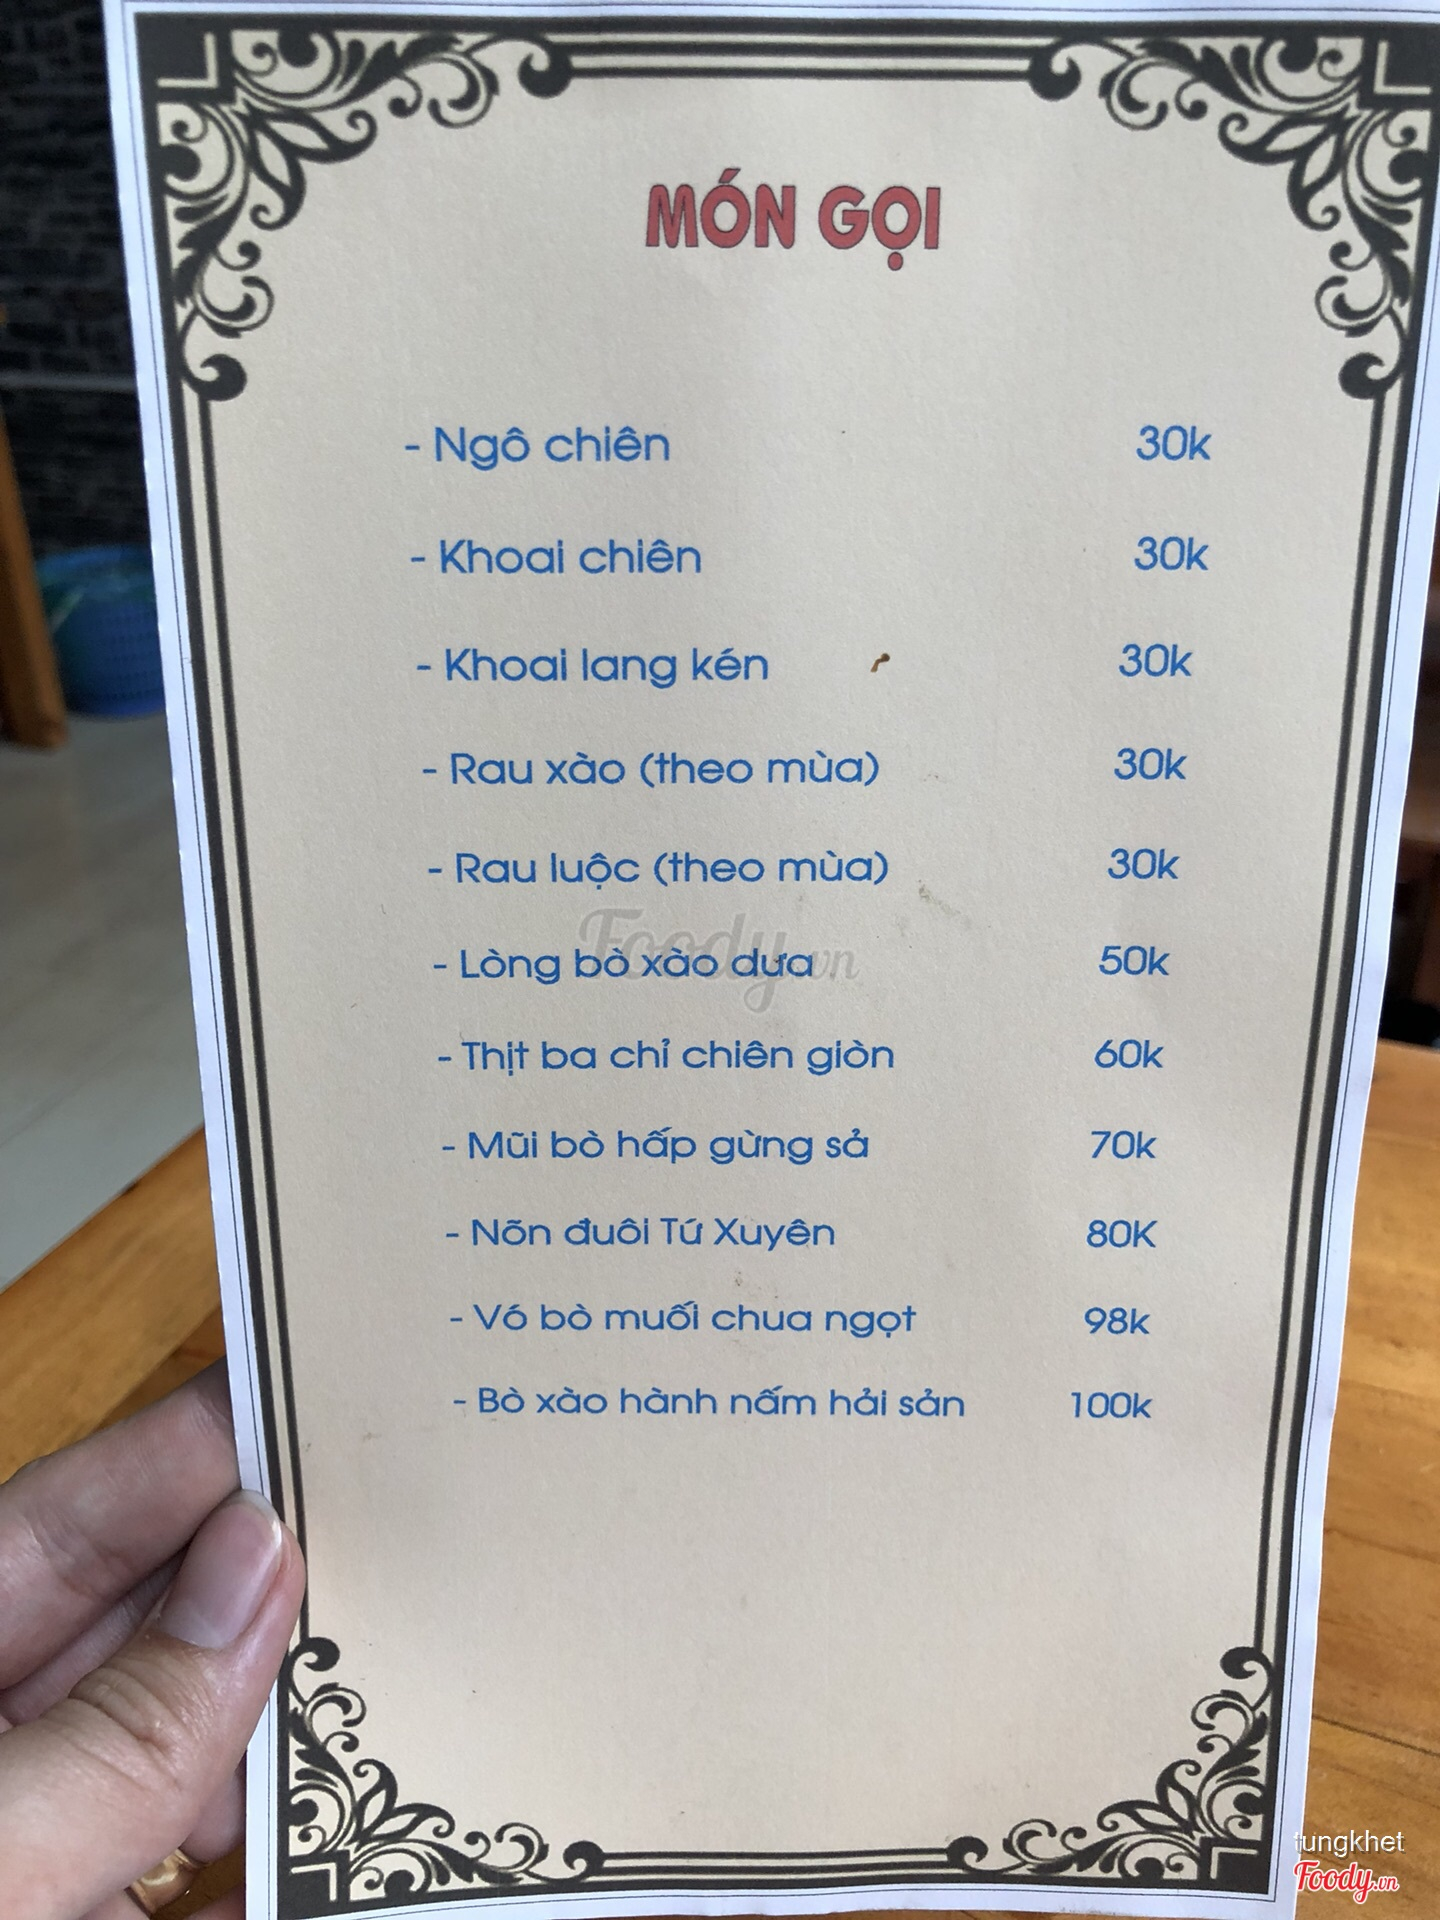 MÓN GỌI
- Ngô chiên 30k
- Khoai chiên 30k
- Khoai lang kén 30k
- Rau xào (theo mùa) 30k
- Rau luộc (theo mùa) 30k
- Lòng bò xào dưa 50k
Foody.vn
- Thịt ba chỉ chiên giòn 60k
- Mũi bò hấp gừng sả 70k
- Nõn đuôi Tứ Xuyên 80K
- Vó bò muối chua ngọt 98k
- Bò xào hành nấm hải sản 100k
tungkhet
Foody.vn